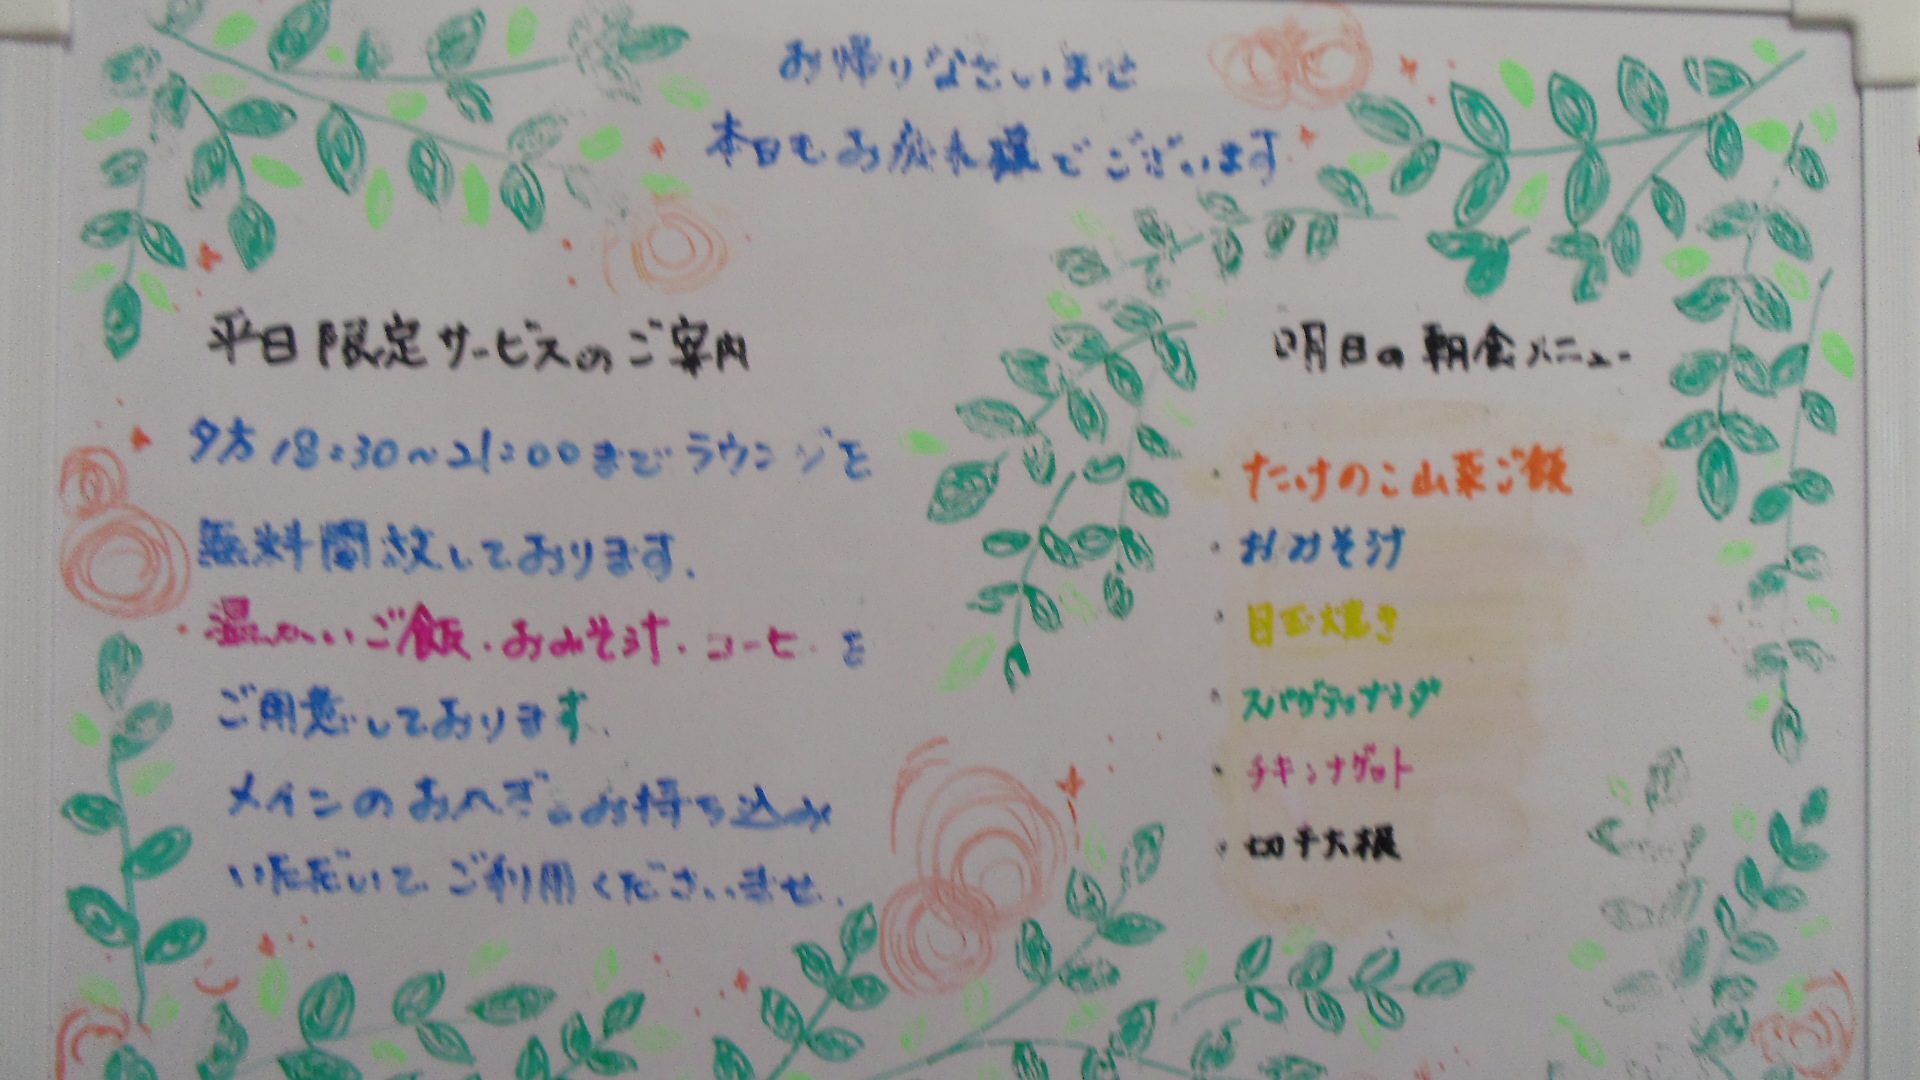 お帰りなさいませ
本日もお疲れ様でございます
平日限定サービスのご案内
夕方18:30~21:00までラウンジを
無料開放しております.
温かいご飯・おみそ汁・コーヒーを
ご用意しております.
メインのおかずをお持ち込み
いただいてご利用くださいませ.
明日の朝食メニュー
・たけのこ山菜ご飯
・おみそ汁
・目玉焼き
・スパゲティサラダ
・チキンナゲット
・切干大根